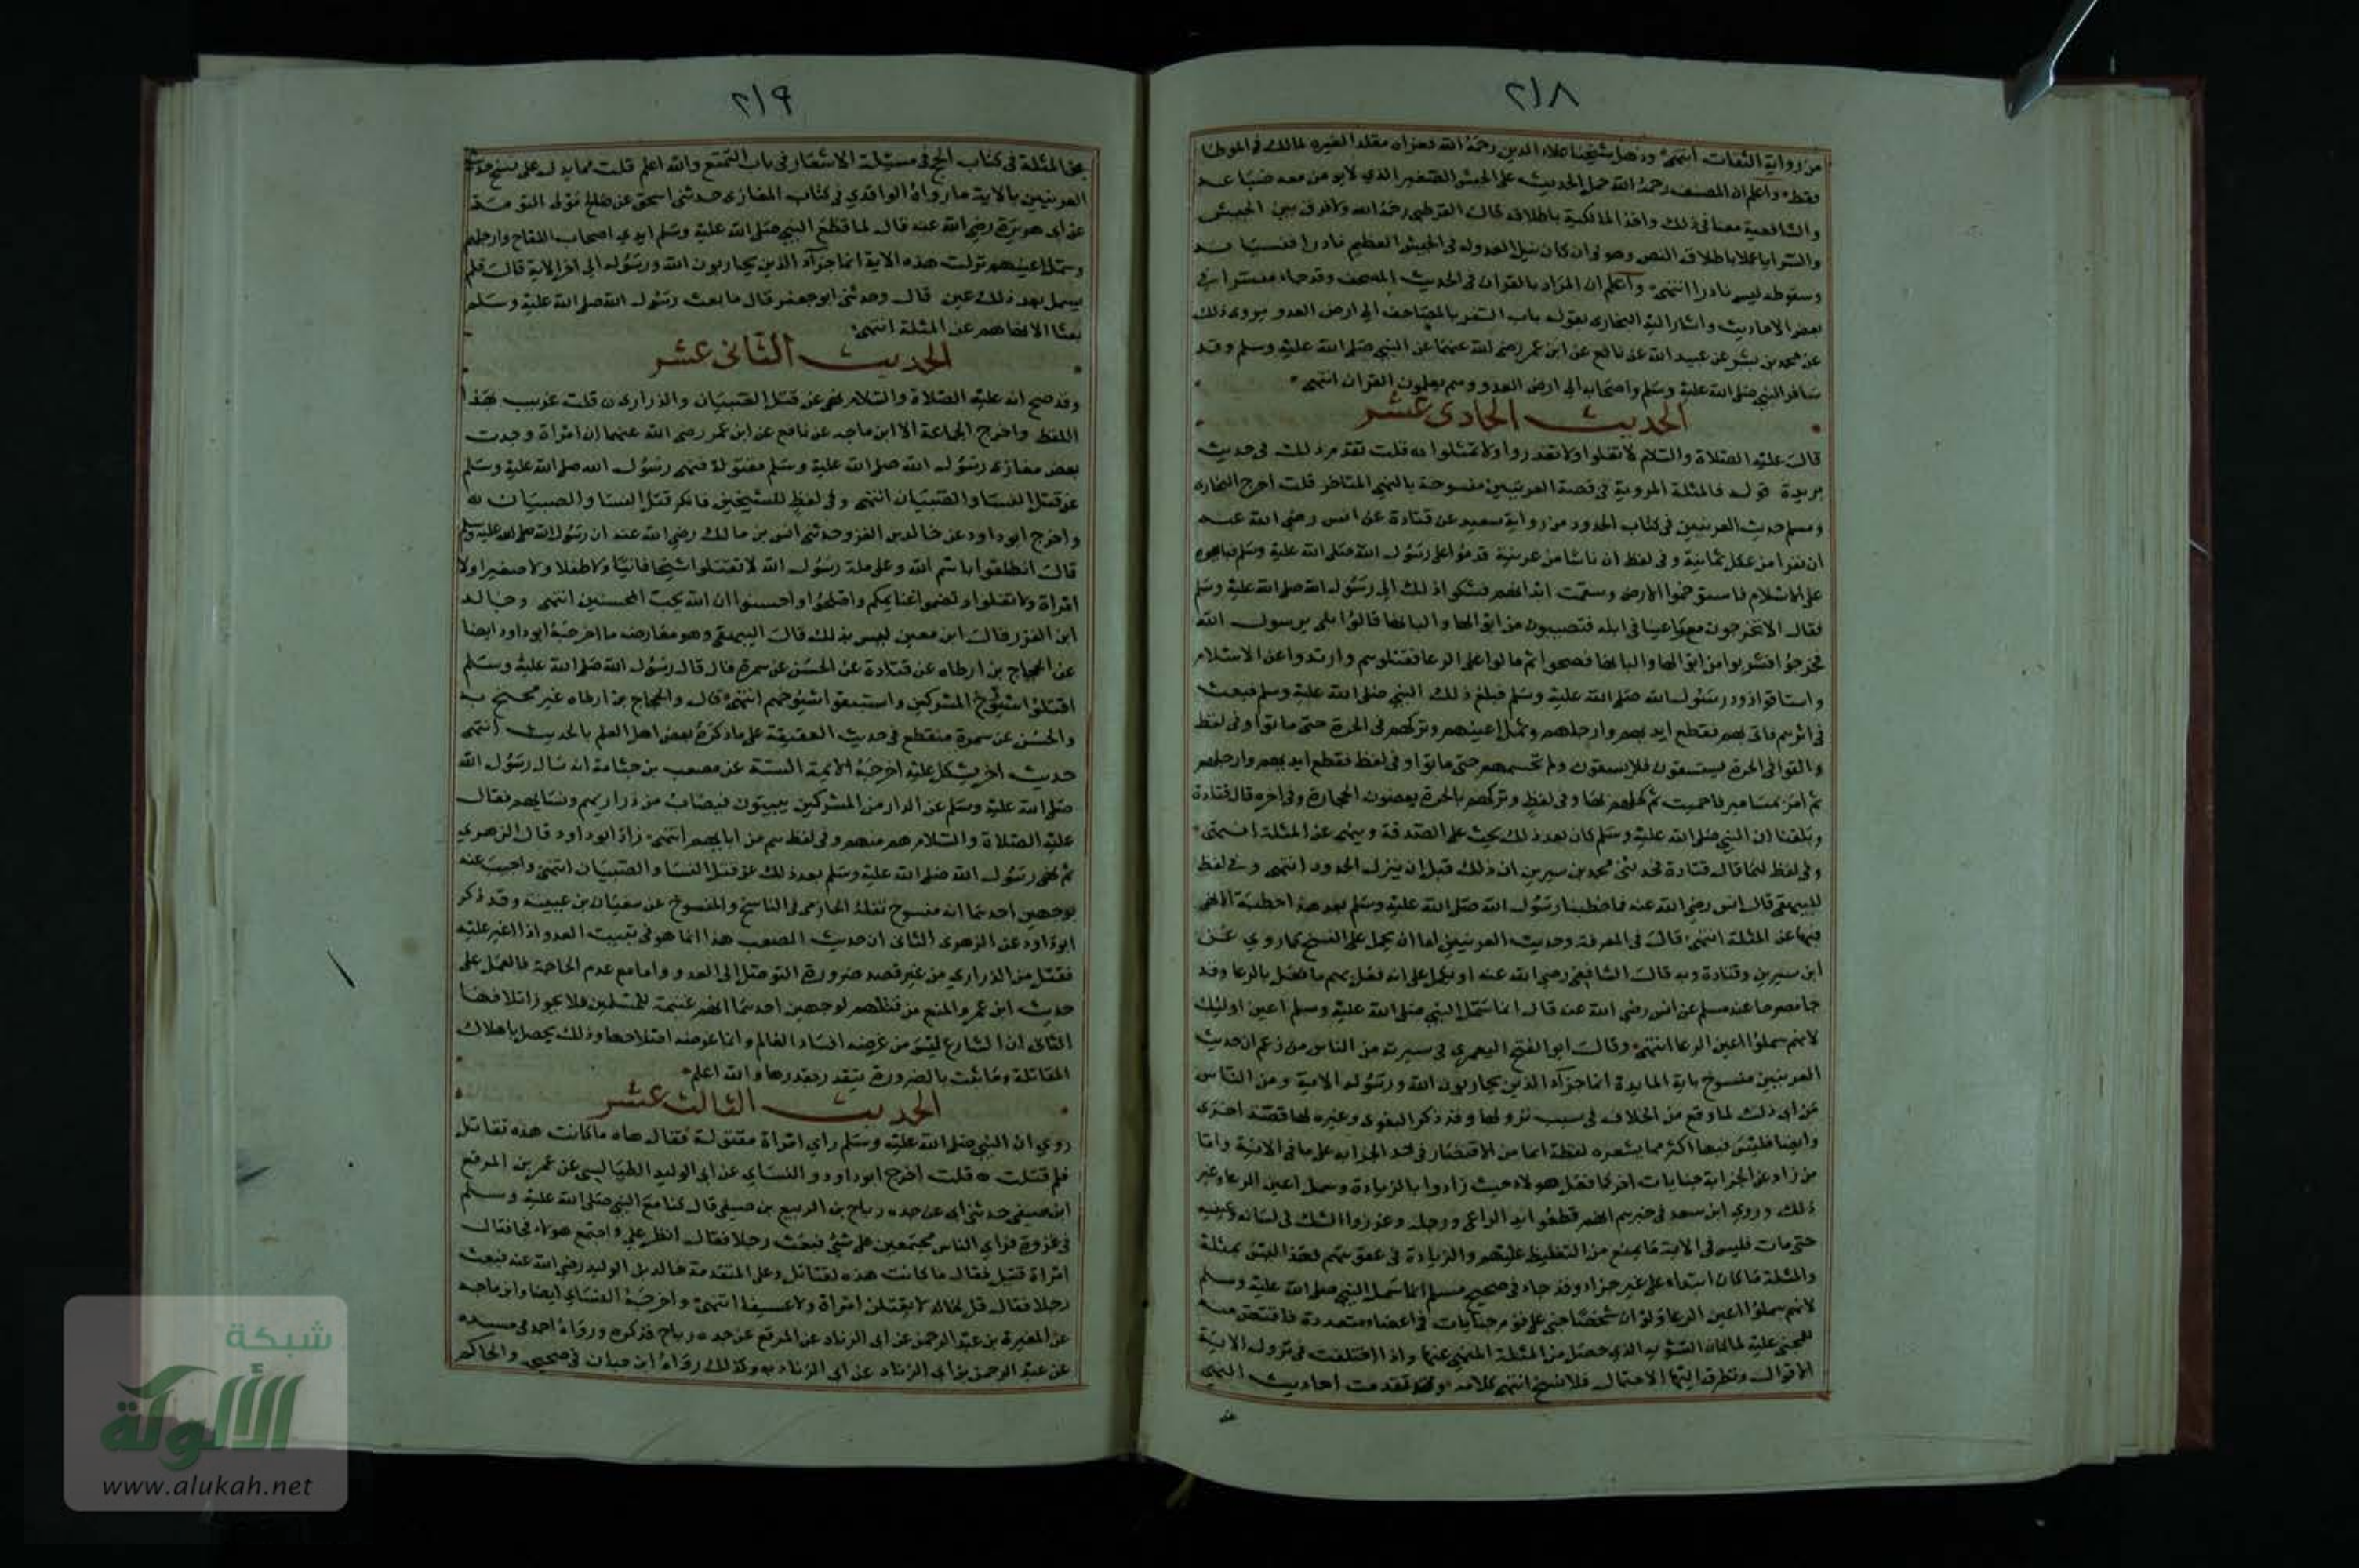 ٢١٨
من رواية الثقات انتهى وذهل شيخنا علاء الدين رحمه الله فعزاه مقلدا لغيره لمالك في الموطا
فقط واعلم ان المصنف رحمه الله حمل الحديث على الجيش الصغير الذي لا يومن معه ضياعه
والشافعية معنا في ذلك واخذ المالكية باطلاقه قال القرطبي رحمه الله ولا فرق بين الجيش
والسرايا عملا باطلاق النص وهو وان كان نيل العدو له في الجيش العظيم نادرا فنسيانه
وسقوطه ليس نادرا انتهى واعلم ان المراد بالقران في الحديث المصحف وقد جاء مفسرا في
بعض الاحاديث واشار اليه البخاري بقوله باب السفر بالمصاحف الى ارض العدو يروى ذلك
عن محمد بن بشر عن عبيد الله عن نافع عن ابن عمر رضي الله عنهما عن النبي صلى الله عليه وسلم وقد
سافر النبي صلى الله عليه وسلم واصحابه الى ارض العدو وهم يعلمون القران انتهى
الحديث الحادى عشر
قال عليه الصلاة والسلام لا تغلوا ولا تغدروا ولا تمثلوا قلت تقدم ذلك في حديث
بريدة قوله فالمثلة المروية في قصة العرنيين منسوخة بالنهي المتاخر قلت اخرج البخاري
ومسلم حديث العرنيين في كتاب الحدود من رواية سعيد عن قتادة عن انس رضي الله عنه
ان نفرا من عكل ثمانية وفي لفظ ان ناسا من عرينة قدموا على رسول الله صلى الله عليه وسلم فبايعوه
على الاسلام فاستوخموا الارض وسقمت ابدانهم فشكوا ذلك الى رسول الله صلى الله عليه وسلم
فقال الا تخرجون مع راعينا في ابله فتصيبون من ابوالها والبانها قالوا بلى يرسول الله
فخرجوا فشربوا من ابوالها والبانها فصحوا ثم مالوا على الرعا فقتلوهم وارتدوا عن الاسلام
واستاقوا ذود رسول الله صلى الله عليه وسلم فبلغ ذلك النبي صلى الله عليه وسلم فبعث
في اثرهم فاتى بهم فقطع ايديهم وارجلهم وسمل اعينهم وتركهم في الحرة حتى ماتوا وفي لفظ
والقوا في الحرة يستسقون فلا يسقون ولم تحسمهم حتى ماتوا وفي لفظ فقطع ايديهم وارجلهم
ثم امر بمسامير فاحميت ثم كحلهم بها وفي لفظ وتركهم بالحرة يعضون الحجارة وفي اخره قال قتادة
وبلغنا ان النبي صلى الله عليه وسلم كان بعد ذلك يحث على الصدقة وينهى عن المثلة انتهى
وفي لفظ لهما قال قتادة فحدثني محمد بن سيرين ان ذلك قبل ان ينزل الحدود انتهى وفي لفظ
للبيهقي قال انس رضي الله عنه فما خطبنا رسول الله صلى الله عليه وسلم بعد هذا خطبة الا نهى
فيها عن المثلة انتهى قال في المعرفة وحديث العرنيين اما ان يحمل على النسخ كما روي عن
ابن سيرين وقتادة وبه قال الشافعي رضي الله عنه او يحمل على انه فعل بهم ما فعل بالرعا وقد
جا مصرحا عند مسلم عن انس رضي الله عنه قال انما سمل النبي صلى الله عليه وسلم اعين اوليك
لانهم سملوا اعين الرعا انتهى وقال ابو الفتح اليعمري في سيرته من الناس من زعم ان حديث
العرنيين منسوخ باية المايدة انما جزآء الذين يحاربون الله ورسوله الاية ومن الناس
من ابى ذلك لما وقع من الخلاف في سبب نزولها وقد ذكر البغوى وغيره لها قصة اخرى
وايضا فليس فيها اكثر مما يشعره لفظة انما من الاقتصار في حد الحرابة على ما في الاية واما
من زاد على الحرابة جنايات اخر كما فعل هولاء حيث زادوا بالردة وسمل اعين الرعا وغير
ذلك وروي ابن سعد في خبرهم انهم قطعوا يد الراعي ورجله وغرزوا الشوك في لسانه وعينيه
حتى مات فليس في الاية ما يمنع من التغليظ عليهم والزيادة في عقوبتهم فهذا ليس بمثلة
والمثلة ما كان ابتداء على غير جزاء وقد جاء في صحيح مسلم انما سمل النبي صلى الله عليه وسلم
لانهم سملوا اعين الرعا ولو ان شخصا جنى على قوم جنايات في اعضاء متعددة فاقتص منه
للمجني عليه لما كان التشويه الذي حصل من المثلة المنهي عنها واذا اختلفت في نزول الاية
الاقوال وتطرق اليها الاحتمال فلا نسخ انتهى كلامه وقد تقدمت احاديث النهي
عن
٢١٩
عن المثلة في كتاب الحج في مسيلة الاشعار في باب التمتع والله اعلم قلت مما يدل على نسخ حديث
العرنيين بالاية ما رواه الواقدي في كتاب المغازى حدثنى اسحق عن صالح مولى التومة
عن ابى هريرة رضي الله عنه قال لما قطع النبي صلى الله عليه وسلم ايدي اصحاب اللقاح وارجلهم
وسمل اعينهم نزلت هذه الاية انما جزآء الذين يحاربون الله ورسوله الى اخر الاية قال فلم
يسمل بعد ذلك عين قال وحدثني ابو جعفر قال ما بعث رسول الله صلى الله عليه وسلم
بعثا الا نهاهم عن المثلة انتهى
الحديث الثانى عشر
وقد صح انه عليه الصلاة والسلام نهى عن قتل الصبيان والذراري قلت غريب بهذا
اللفظ واخرج الجماعة الا ابن ماجه عن نافع عن ابن عمر رضي الله عنهما ان امراة وجدت
بعض مغازى رسول الله صلى الله عليه وسلم مقتولة فنهى رسول الله صلى الله عليه وسلم
عن قتل النسا والصبيان انتهى وفي لفظ للشيخين فانكر قتل النسا والصبيان
واخرج ابو داود عن خالد بن الفزر حدثني انس بن مالك رضي الله عنه ان رسول الله صلى الله عليه وسلم
قال انطلقوا باسم الله وعلى ملة رسول الله لا تقتلوا شيخا فانيا ولا طفلا ولا صغيرا ولا
امراة ولا تغلوا وضموا غنايمكم واصلحوا واحسنوا ان الله يحب المحسنين انتهى وخالد
ابن الفزر قال ابن معين ليس بذلك قال البيهقي وهو معارض بما اخرجه ابو داود ايضا
عن الحجاج بن ارطاه عن قتادة عن الحسن عن سمرة قال قال رسول الله صلى الله عليه وسلم
اقتلوا شيوخ المشركين واستبقوا شيوخهم انتهى قال والحجاج بن ارطاه غير محتج به
والحسن عن سمرة منقطع في حديث العقيقة على ما ذكره بعض اهل العلم بالحديث انتهى
حديث اخر يشكل عليه اخرجه الايمة الستة عن مصعب بن جثامة انه سال رسول الله
صلى الله عليه وسلم عن الدار من المشركين يبيتون فيصاب من ذراريهم ونسايهم فقال
عليه الصلاة والسلام هم منهم وفي لفظ هم من ابايهم انتهى زاد ابو داود قال الزهري
ثم نهى رسول الله صلى الله عليه وسلم بعد ذلك عن قتل النسا والصبيان انتهى واجيب عنه
بوجهين احدهما انه منسوخ نقله الحازمي في الناسخ والمنسوخ عن سفيان بن عيينة وقد ذكر
ابو داود عن الزهرى الثاني ان حديث المصعب هذا انما هو في تبييت العدو اذا اغير عليه
فقتل من الذراري من غير قصد ضرورة التوصل الى العدو واما مع عدم الحاجة فالعمل على
حديث ابن عمر والمنع من قتلهم لوجهين احدهما انهم غنيمة للمسلمين فلا يجوز اتلافها
الثاني ان الشارع ليس من غرضه افساد العالم وانما غرضه اصلاحها وذلك يحصل باهلاك
المقاتلة وما ثبت بالضرورة يتقدر بقدرها والله اعلم
الحديث الثالث عشر
روي ان النبي صلى الله عليه وسلم راي امراة مقتولة فقال هاه ما كانت هذه تقاتل
فلم قتلت قلت اخرج ابو داود والنساي عن ابي الوليد الطيالسي عن عمر بن المرقع
ابن صيفي حدثني ابي عن جده رباح بن الربيع بن صيفي قال كنا مع النبي صلى الله عليه وسلم
في غزوة فراي الناس مجتمعين على شئ فبعث رجلا فقال انظر علي ما اجتمع هولاء فجا فقال
امراة قتيل فقال ما كانت هذه لتقاتل وعلى المقدمة خالد بن الوليد رضي الله عنه فبعث
رجلا فقال قل لخالد لا يقتلن امراة ولا عسيفا انتهى واخرجه النساي ايضا وابن ماجه
عن المغيرة بن عبد الرحمن عن ابى الزناد عن المرقع عن جده رباح فذكره ورواه احمد في مسنده
عن عبد الرحمن بن ابي الزناد عن ابي الزناد به وكذلك رواه ابن حبان في صحيحه والحاكم
شبكة
الألوكة
www.alukah.net